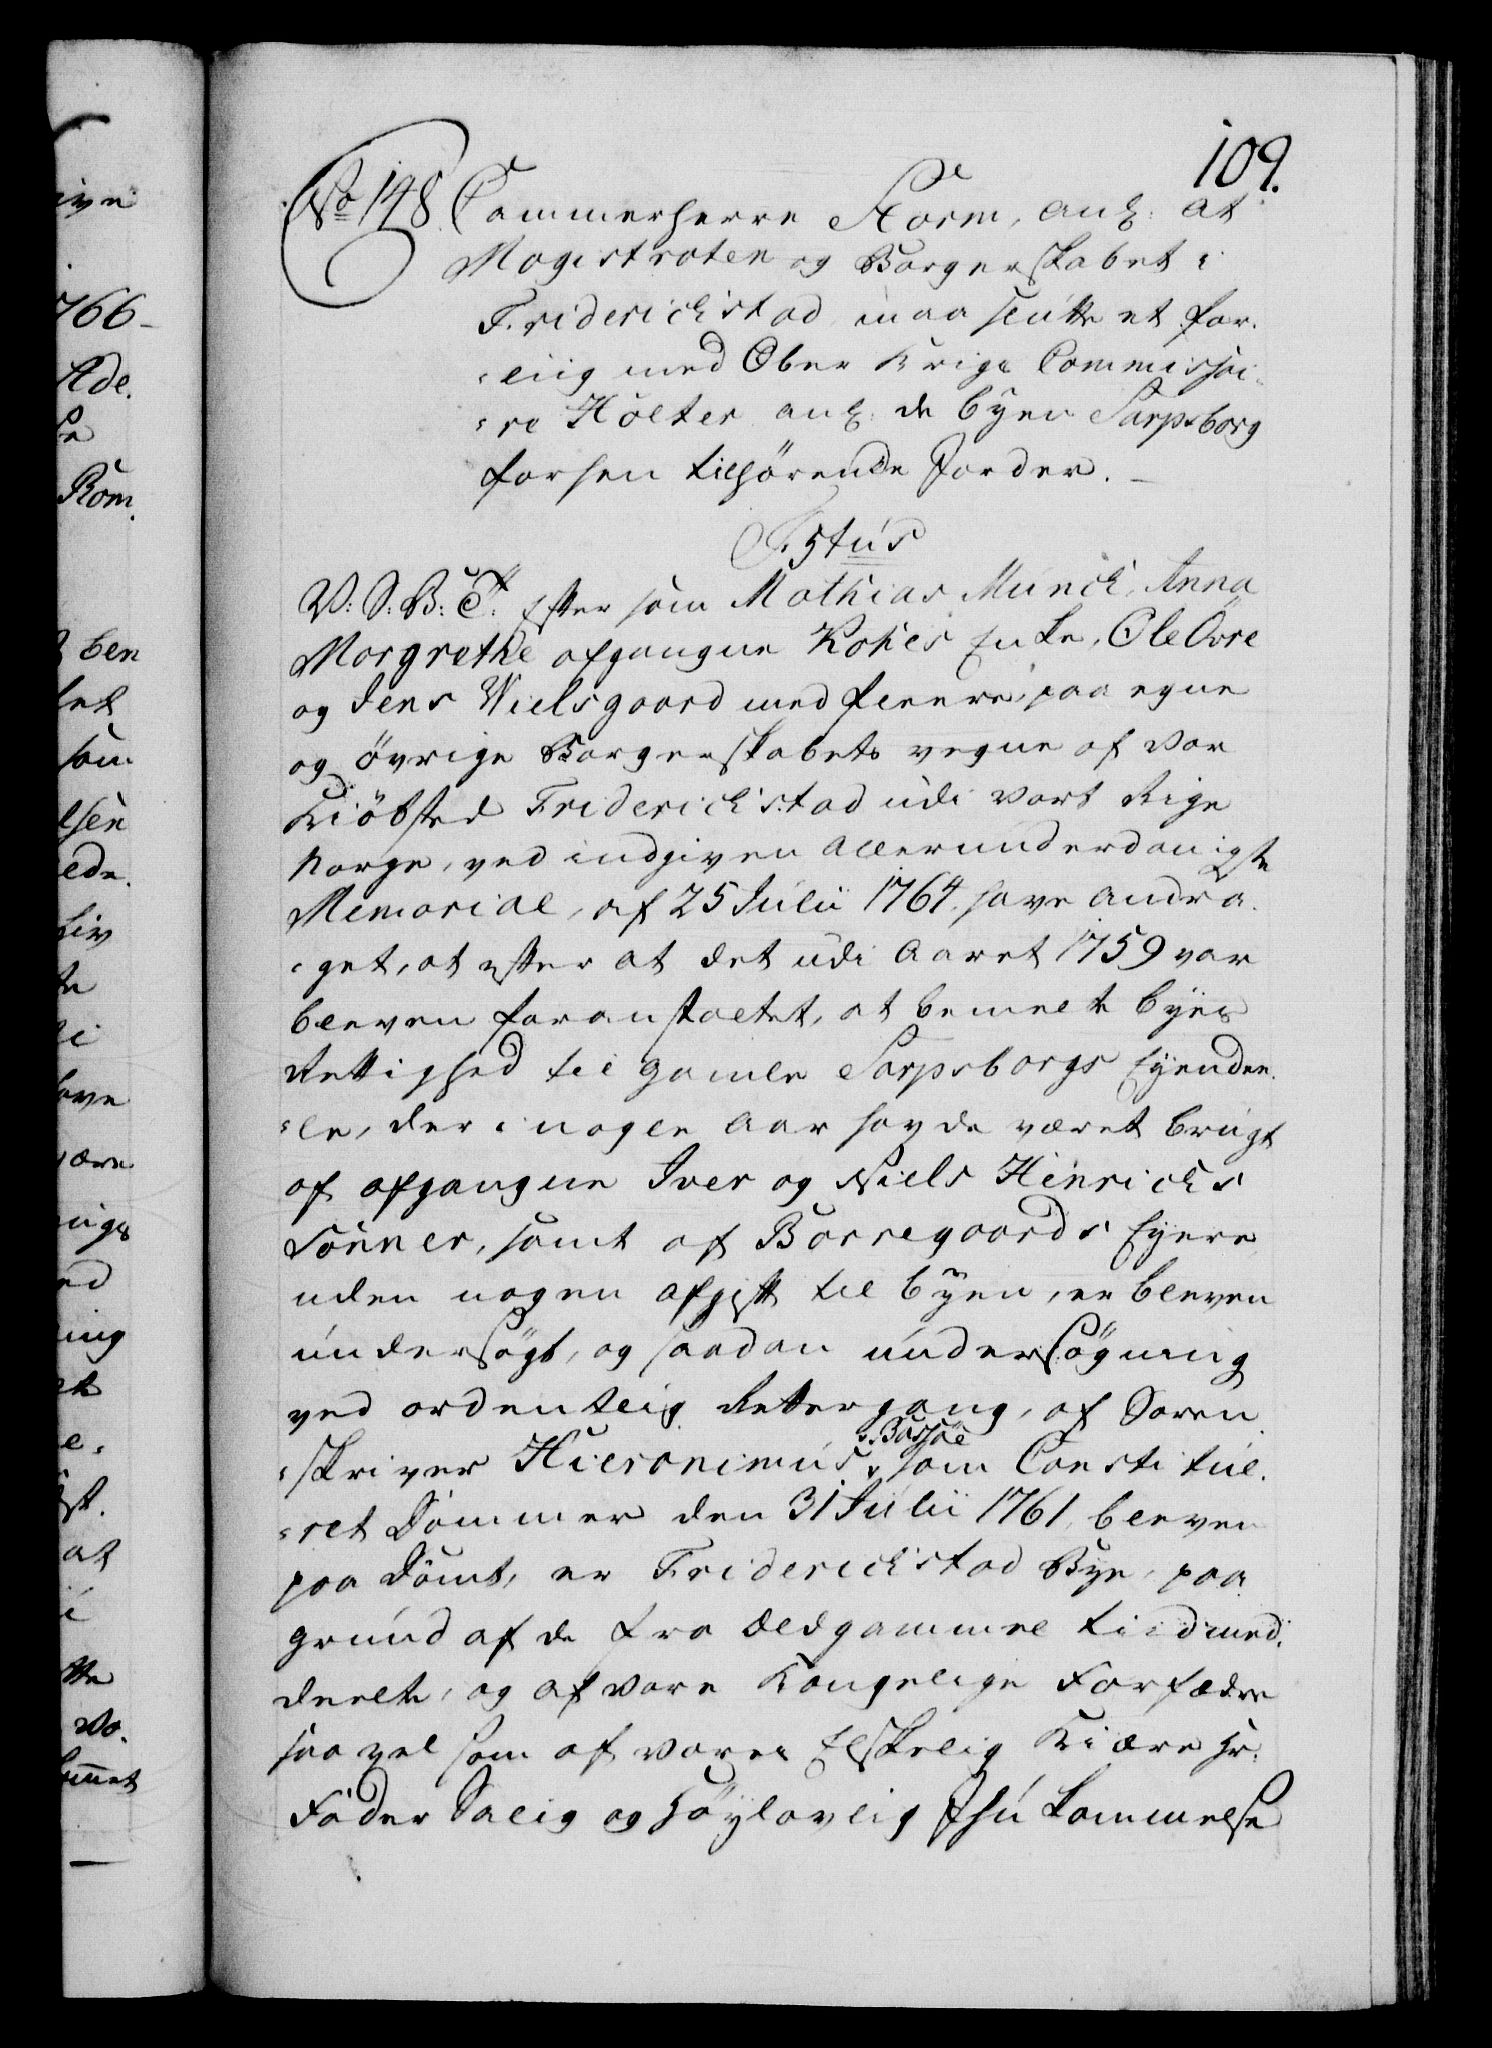 109.
No 148. Cammerherre Storm, anl: at
Magistraten og Borgerskabet i
Friderichstad maa slutte et for-
-liig med Ober Krigs Commissai-
-re Holter anl: de byen Sarpsborg
forhen tilhørende Jorder.
C. 5tus
V: S: B: T: Efter som Mathias Munch, Anna
Margrethe afgangne Kohls Enke, Ole Övre
og Jens Nielsgaard med fleere, paa egne
og övrige Borgerskabets vegne af vor
Kiöbsted Friderichstad udi vort Rige
Norge, ved indgiven allerunderdanigste
Memorial, af 25 Julii 1764. have andra-
-get, at efter at det udi Aaret 1759 var
bleven foranstaltet, at bemelte byes
Rettighed til gamle Sarpsborgs Eyende-
-le, der i nogle Aar havde været brugt
af afgangne Iver og Niels Hinrichs
Sönner, samt af Borregaards Eyere
uden nogen afgift til byen, er bleven
undersögt, og saadan undersögning
ved ordentlig Rettergang, af Soren-
-skriver Hieronimus Bassöe som Constitue-
-ret Dommer den 31 Julii 1761, bleven
paa Dömt, er Friderichstad Bye, paa
grund af de fra Ældgammel tiid med-
deelte, og af vore Kongelige Forfædre
saavel som af vores Elskelig Kiære Hr:
Fader Salig og Höylovlig Ihukommelse
766-
Ade.
Rom.
ben
som
elsen
ede.
Liv
at
Vo.